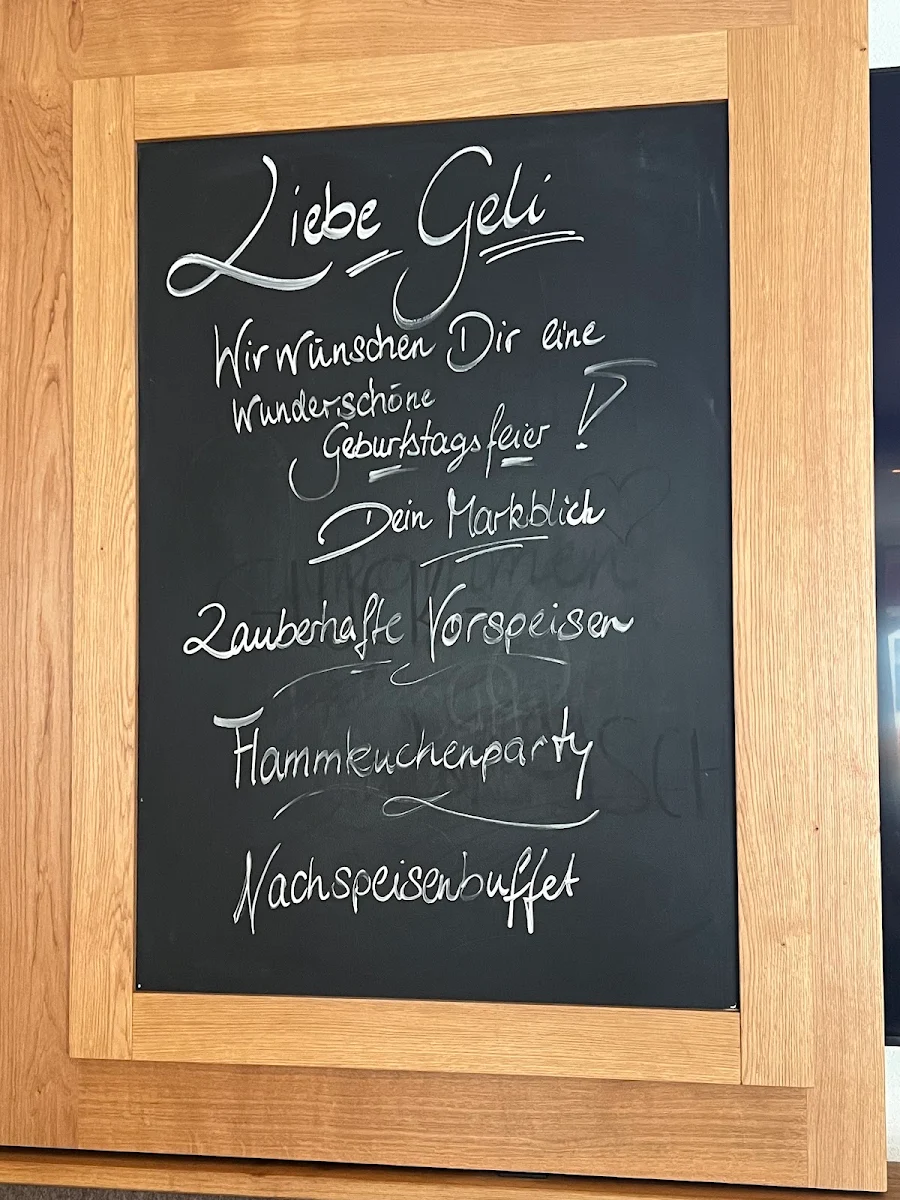 Liebe Geli
Wir wünschen Dir eine
wunderschöne
Geburtstagsfeier !
Dein Markblich
Zauberhafte Vorspeisen
Flammkuchenparty
Nachspeisenbuffet